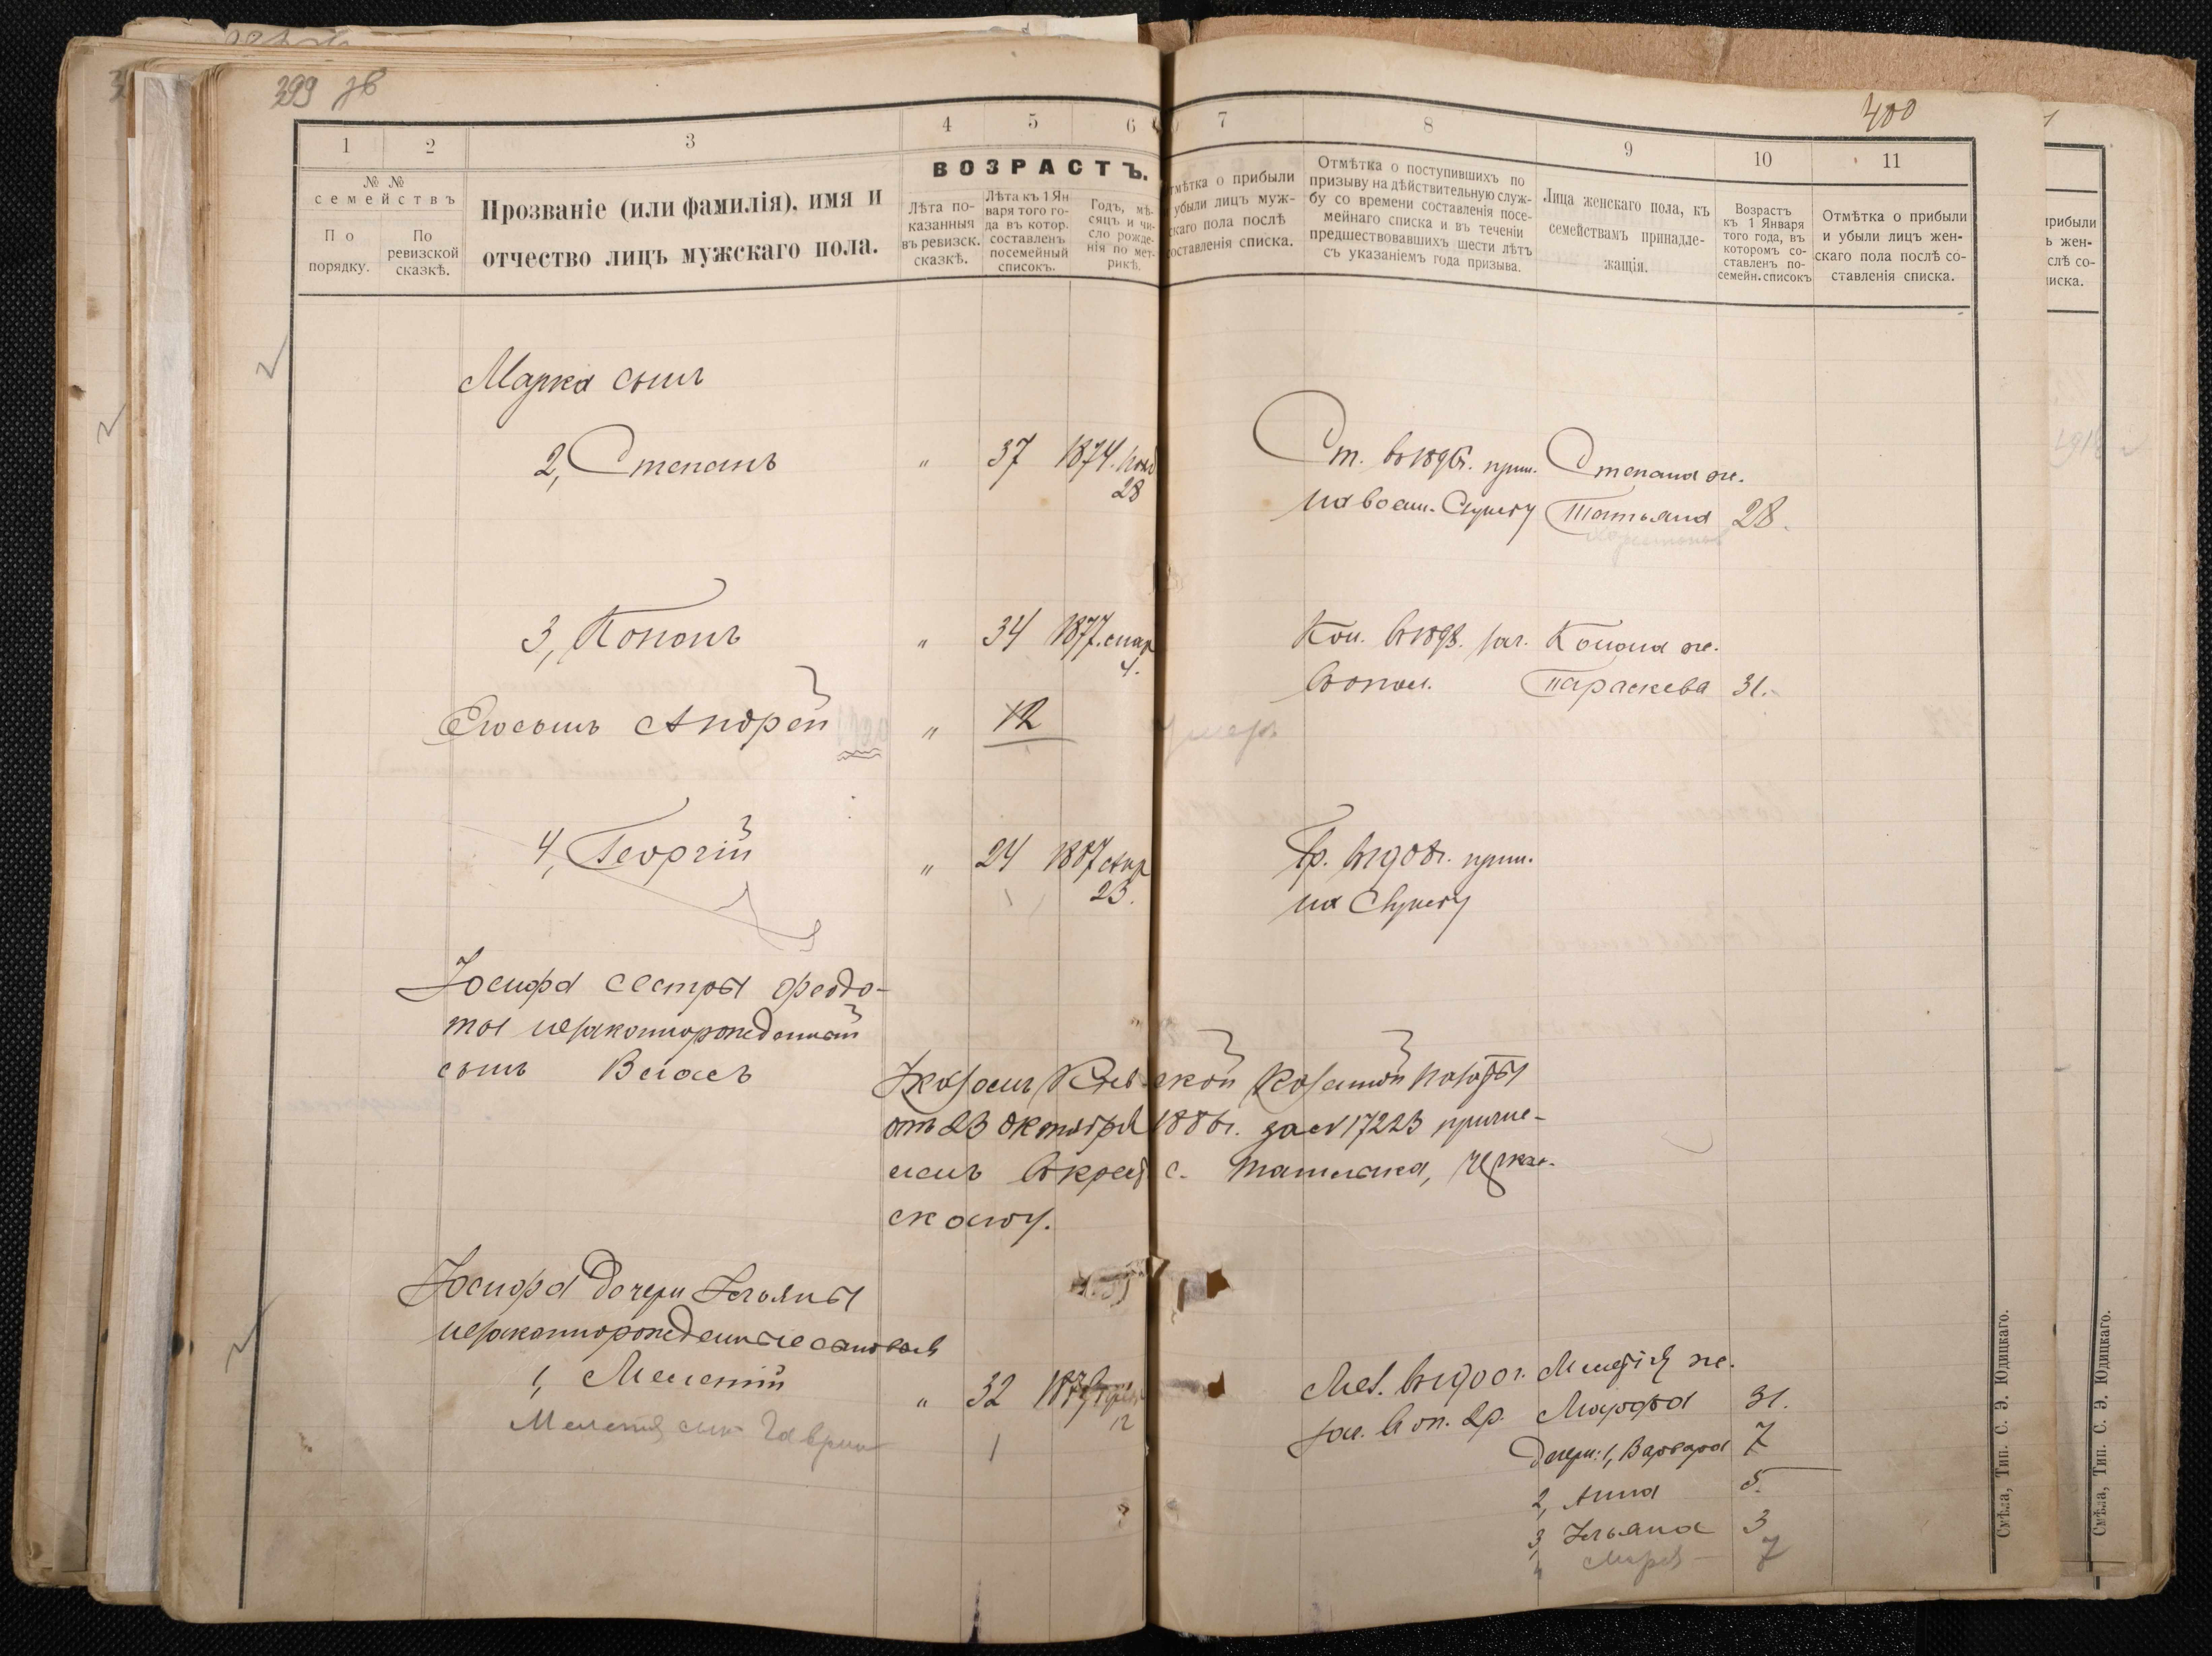 399 зв
400
1
2
3
4
5
6
7
8
9
10
11
№ №
семействъ
По порядку.
По ревизской сказкѣ.
Прозваніе (или фамилія), имя и
отчество лицъ мужскаго пола.
ВОЗРАСТЪ.
Лѣта по-
казанныя
въ ревизск.
сказкѣ.
Лѣта къ 1 Ян
варя того го-
да въ котор.
составленъ
посемейный
списокъ.
Годъ, мѣ-
сяцъ и чи-
сло рожде-
нія по мет-
рикѣ.
тмѣтка о прибыли
убыли лицъ муж-
скаго пола послѣ
составленія списка.
Отмѣтка о поступившихъ по
призыву на дѣйствительную служ-
бу со времени составленія посе-
мейнаго списка и въ теченіи
предшествовавшихъ шести лѣтъ
съ указаніемъ года призыва.
Лица женскаго пола, къ
семействамъ принадле-
жащія.
Возрастъ
къ 1 Января
того года, въ
которомъ со-
ставленъ по-
семейн. списокъ
Отмѣтка о прибыли
и убыли лицъ жен-
скаго пола послѣ со-
ставленія списка.
прибыли
ъ жен-
слѣ со-
иска.
Марка сынъ
2, Степанъ " 37 1874. Ст. въ 1896г. прин. Степана же.
28 на воен. Службу Татьяна 28.
3, Кононъ " 34 1877. мар Кон. въ 1898. зач. Конона же.
4. въ опол. Параскева 31.
Его сынъ Андрей " 12 умеръ
4, Георгій " 24 1887 апр Гр. въ 1908г. прин.
23. на Службу
Іосифа сестры Феодо-
ты незаконнорожденный
сынъ Власъ
Указомъ Кіевской Казенной Палаты
отъ 23 октября 1886г. за № 17223 причи-
сленъ въ крест. с. Ташлыка, Черкас-
скому.
Іосифа дочери Ульяны
незаконнорожденные сыновья
1, Мелетій " 32 Мел. въ 1900г. Мелетія же.
12 зач. въ оп. 2р. Марфа 31.
Мелетія сын Гаврии 1
Дочери: 1, Варвара 7
2, Анна 5.
3, Ульяна 3
4 7
Смѣла, Тип. С. Э. Юдицкаго.
Смѣла, Тип. С. Э. Юдицкаго.